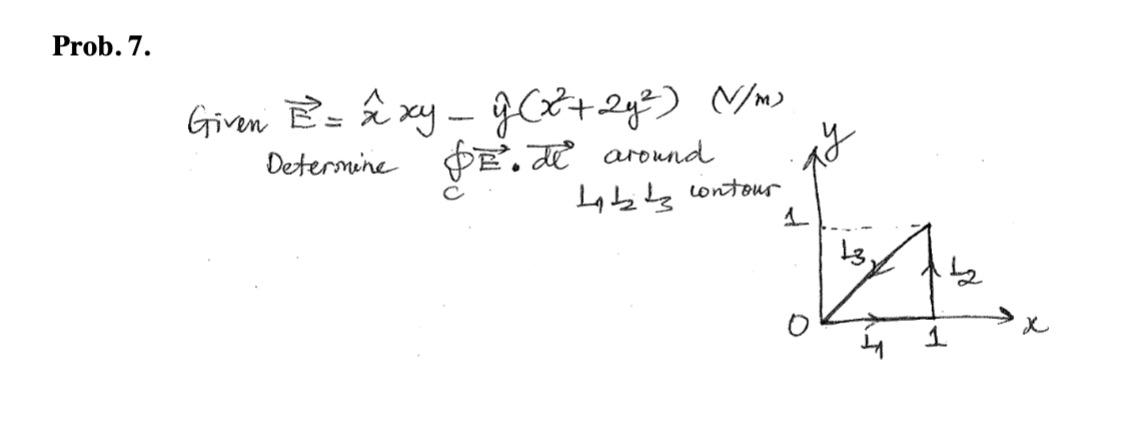 Prob. 7.
Given E⃗ = x̂ xy - ŷ(x²+2y²) (V/m)
Determine ∮_C E⃗ . dl⃗ around
L1 L2 L3 contour
y
1
L3
L2
0
L1
1
x